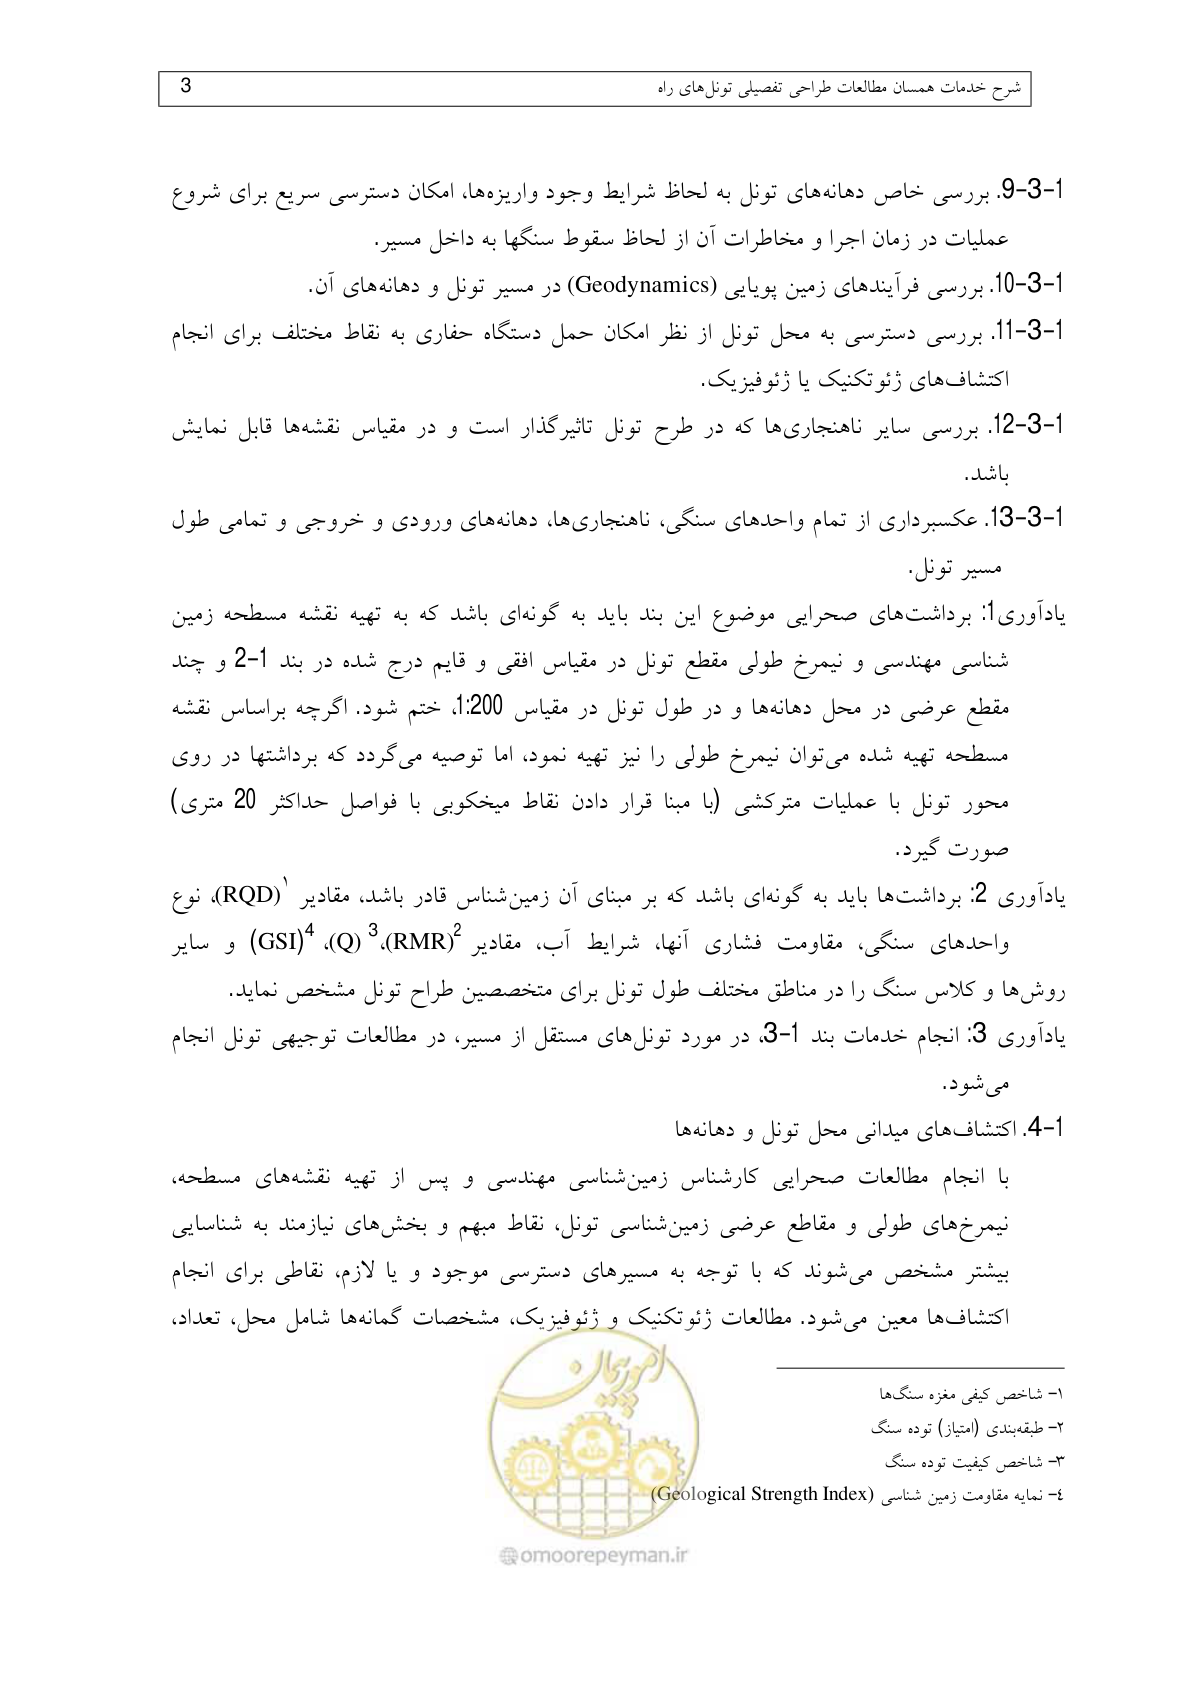 شرح خدمات همسان مطالعات طراحی تفصیلی تونل‌های راه 3
1-3-9. بررسی خاص دهانه‌های تونل به لحاظ شرایط وجود واریزه‌ها، امکان دسترسی سریع برای شروع
عملیات در زمان اجرا و مخاطرات آن از لحاظ سقوط سنگها به داخل مسیر.
1-3-10. بررسی فرآیندهای زمین پویایی (Geodynamics) در مسیر تونل و دهانه‌های آن.
1-3-11. بررسی دسترسی به محل تونل از نظر امکان حمل دستگاه حفاری به نقاط مختلف برای انجام
اکتشاف‌های ژئوتکنیک یا ژئوفیزیک.
1-3-12. بررسی سایر ناهنجاری‌ها که در طرح تونل تاثیرگذار است و در مقیاس نقشه‌ها قابل نمایش
باشد.
1-3-13. عکسبرداری از تمام واحدهای سنگی، ناهنجاری‌ها، دهانه‌های ورودی و خروجی و تمامی طول
مسیر تونل.
یادآوری1: برداشت‌های صحرایی موضوع این بند باید به گونه‌ای باشد که به تهیه نقشه مسطحه زمین
شناسی مهندسی و نیمرخ طولی مقطع تونل در مقیاس افقی و قایم درج شده در بند 1-2 و چند
مقطع عرضی در محل دهانه‌ها و در طول تونل در مقیاس 1:200، ختم شود. اگرچه براساس نقشه
مسطحه تهیه شده می‌توان نیمرخ طولی را نیز تهیه نمود، اما توصیه می‌گردد که برداشتها در روی
محور تونل با عملیات مترکشی (با مبنا قرار دادن نقاط میخکوبی با فواصل حداکثر 20 متری)
صورت گیرد.
یادآوری 2: برداشت‌ها باید به گونه‌ای باشد که بر مبنای آن زمین‌شناس قادر باشد، مقادیر ¹(RQD)، نوع
واحدهای سنگی، مقاومت فشاری آنها، شرایط آب، مقادیر ²(RMR)، ³(Q)، ⁴(GSI) و سایر
روش‌ها و کلاس سنگ را در مناطق مختلف طول تونل برای متخصصین طراح تونل مشخص نماید.
یادآوری 3: انجام خدمات بند 1-3، در مورد تونل‌های مستقل از مسیر، در مطالعات توجیهی تونل انجام
می‌شود.
1-4. اکتشاف‌های میدانی محل تونل و دهانه‌ها
با انجام مطالعات صحرایی کارشناس زمین‌شناسی مهندسی و پس از تهیه نقشه‌های مسطحه،
نیمرخ‌های طولی و مقاطع عرضی زمین‌شناسی تونل، نقاط مبهم و بخش‌های نیازمند به شناسایی
بیشتر مشخص می‌شوند که با توجه به مسیرهای دسترسی موجود و یا لازم، نقاطی برای انجام
اکتشاف‌ها معین می‌شود. مطالعات ژئوتکنیک و ژئوفیزیک، مشخصات گمانه‌ها شامل محل، تعداد،
۱- شاخص کیفی مغزه سنگ‌ها
۲- طبقه‌بندی (امتیاز) توده سنگ
۳- شاخص کیفیت توده سنگ
٤- نمایه مقاومت زمین شناسی (Geological Strength Index)
امور پیمان
@omoorepeyman.ir